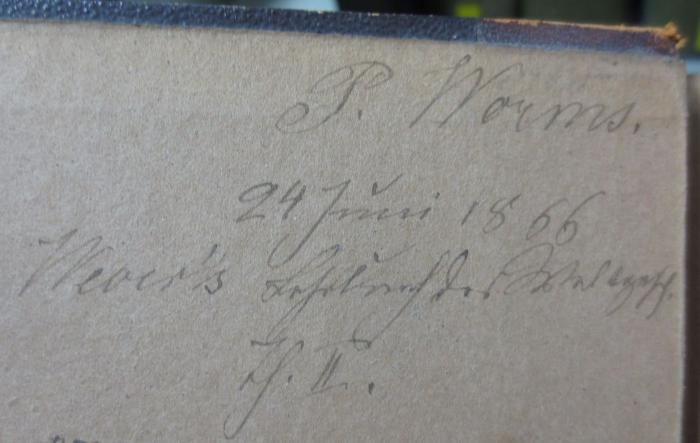 P. Worms.
24 Juni 1866
Lehrbuch der Weltgesch.
Th. II.